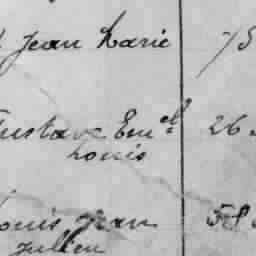 Jean Marie 75
Gustave Em.el 26
Louis
Louis Jean 58
Julien